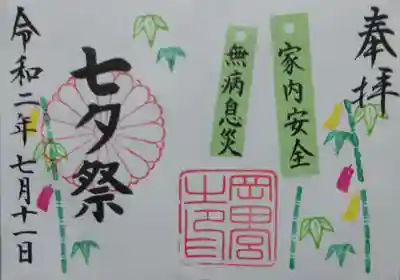 奉拝
家内安全
無病息災
岡田宮
七夕祭
令和二年七月十一日